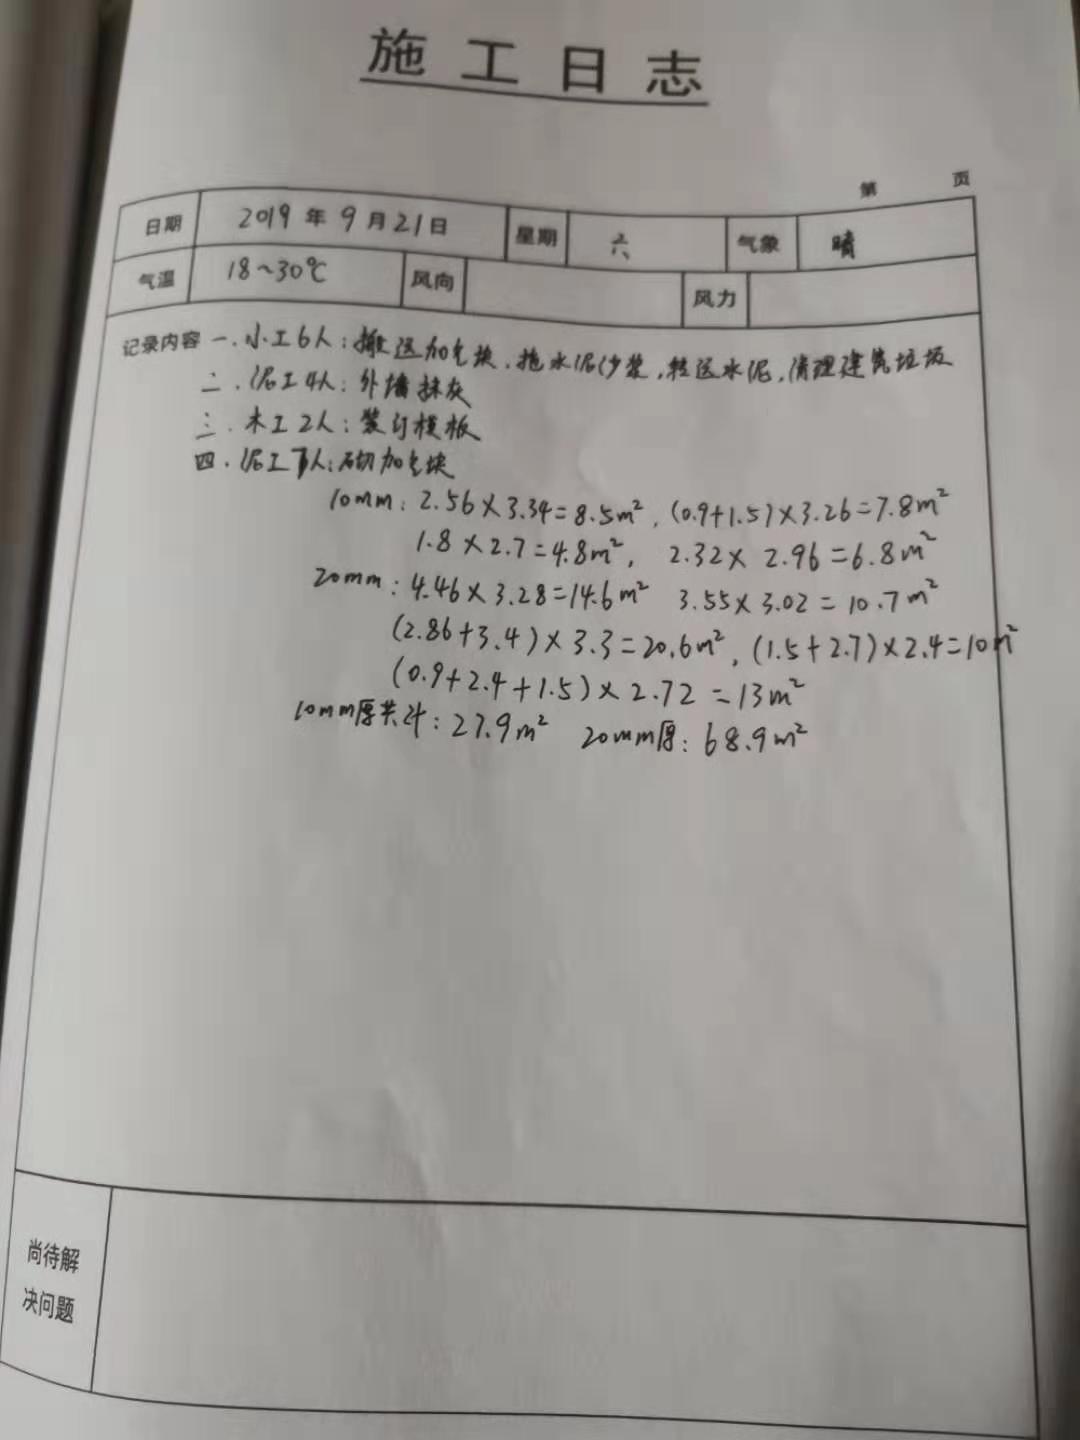 施工日志
第 页
日期 2019年9月21日 星期 六 气象 晴
气温 18~30℃ 风向 风力
记录内容 一.小工6人:搬运加气块.拖水泥沙浆,转运水泥,清理建筑垃圾
二.泥工4人:外墙抹灰
三.木工2人:装订模板
四.泥工 人:砌加气块
10mm:2.56×3.34=8.5m²,(0.9+1.5)×3.26=7.8m²
1.8×2.7=4.8m², 2.32×2.96=6.8m²
20mm:4.46×3.28=14.6m² 3.55×3.02=10.7m²
(2.86+3.4)×3.3=20.6m²,(1.5+2.7)×2.4=10m²
(0.9+2.4+1.5)×2.72=13m²
10mm厚共计:27.9m² 20mm厚:68.9m²
尚待解
决问题